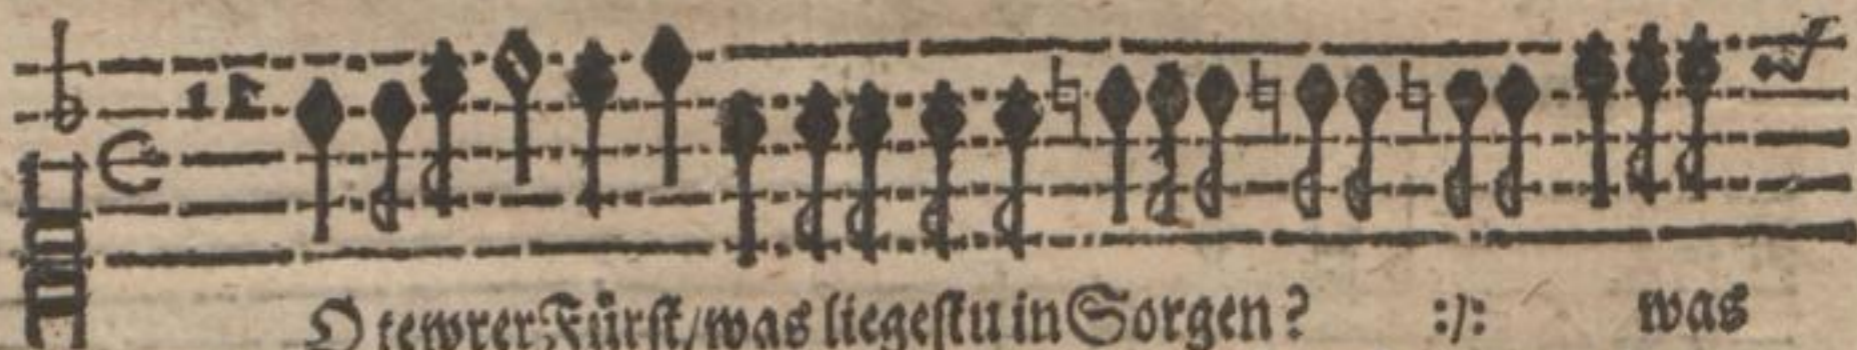 12
O tewrer Fürst/was liegestu in Sorgen? :/: was